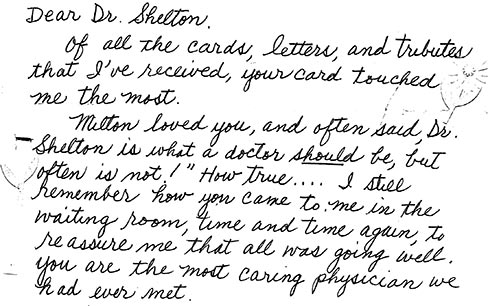 Dear Dr. Shelton.
Of all the cards, letters, and tributes
that I've received, your card touched
me the most.
Milton loved you, and often said, Dr.
Shelton is what a doctor should be, but
often is not!" How true.... I still
remember how you came to me in the
waiting room, time and time again, to
reassure me that all was going well.
You are the most caring physician we
had ever met.